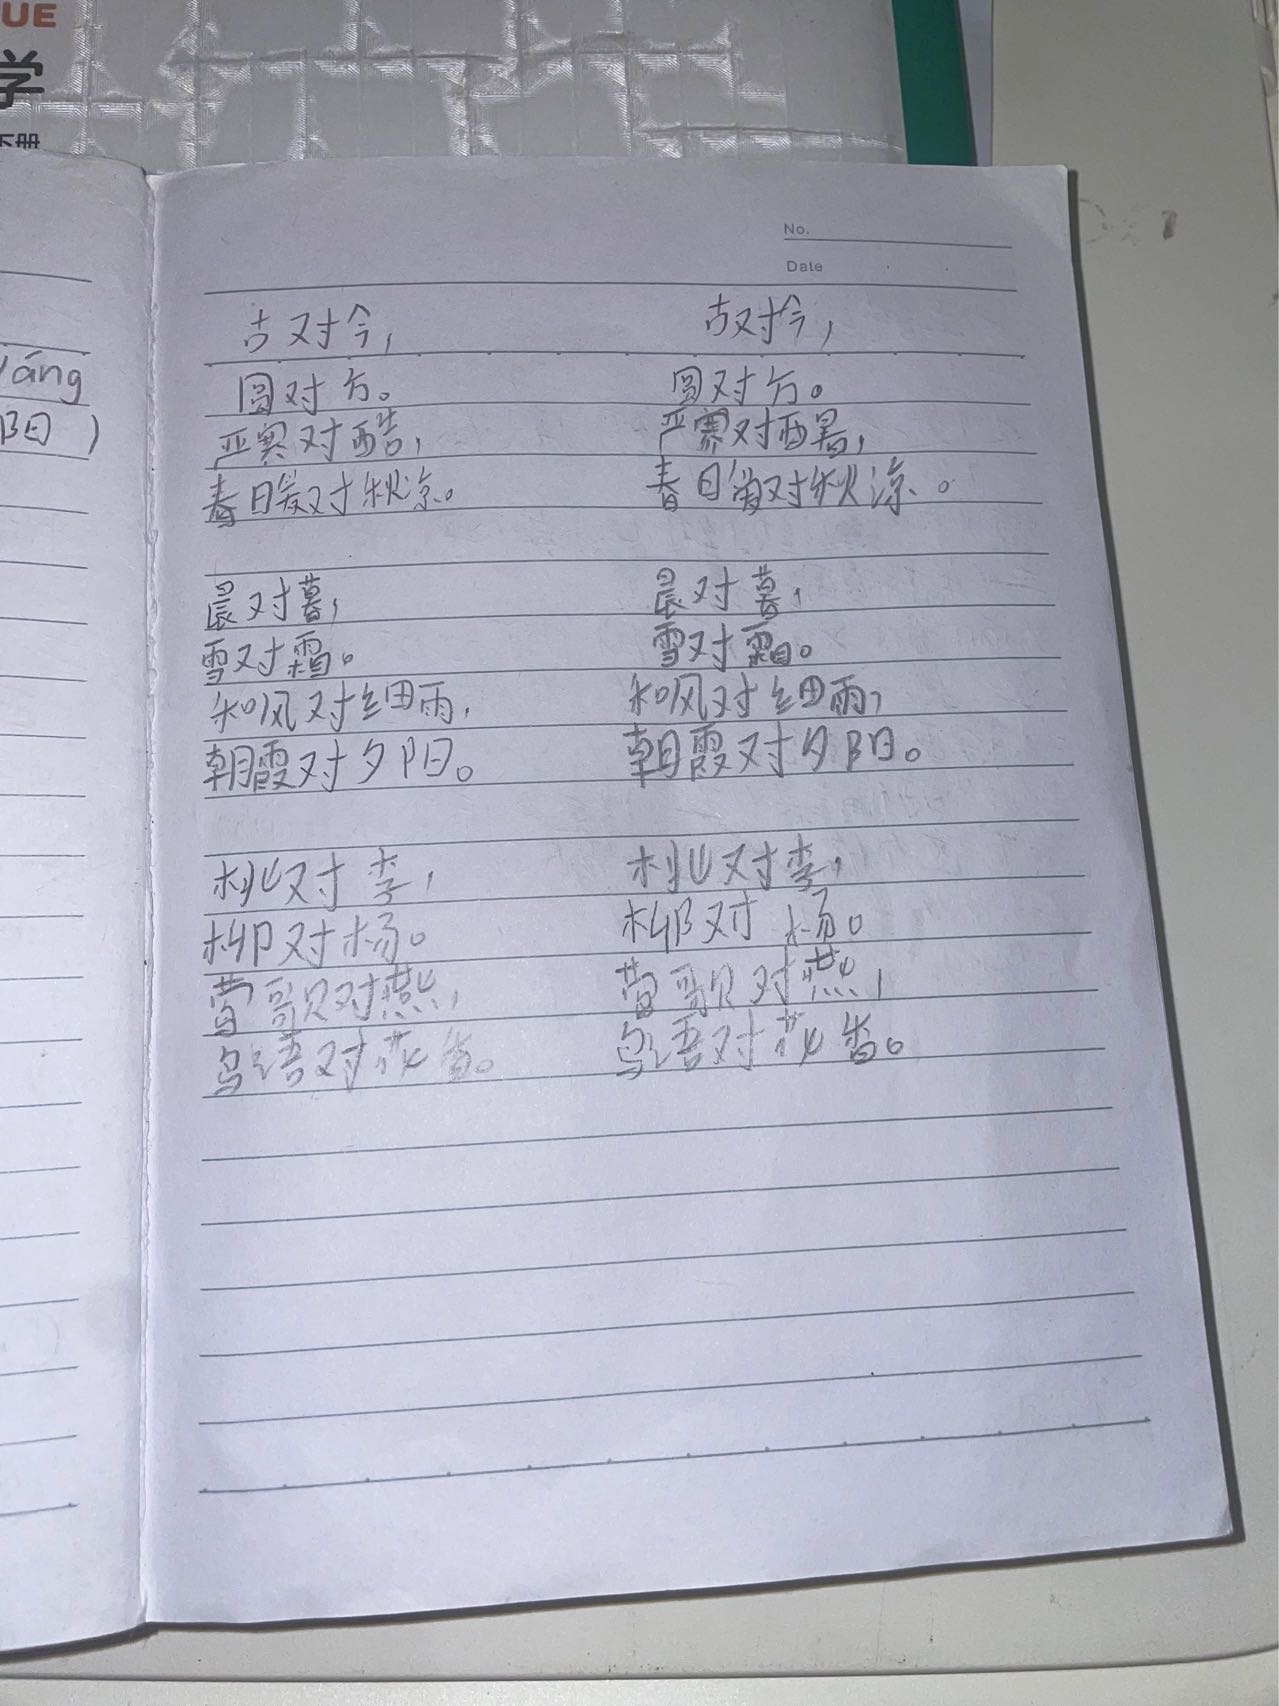 UE
学
下册
No.
Date
yáng
阳）
古对今， 古对今，
圆对方。 圆对方。
严寒对酷， 严寒对酉暑，
春暖对秋凉。 春暖对秋凉。
晨对暮， 晨对暮，
雪对霜。 雪对霜。
和风对细雨， 和风对细雨，
朝霞对夕阳。 朝霞对夕阳。
桃对李， 桃对李，
柳对杨。 柳对杨。
莺歌对燕， 莺歌对燕，
鸟语对花香。 鸟语对花香。